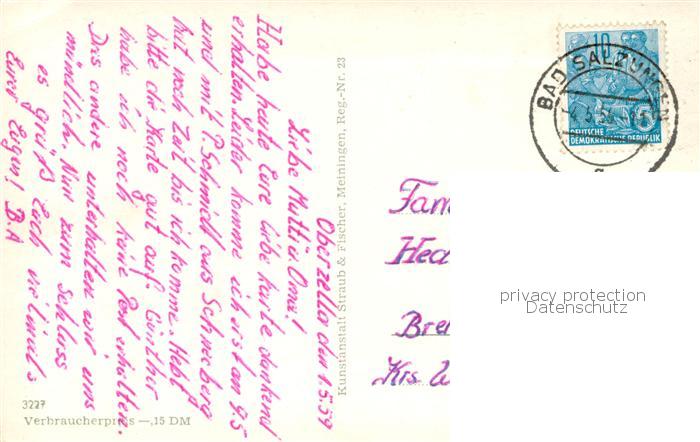 Oberzella den 1.5.59
Liebe Mutti u. Oma!
Habe heute Eure liebe Karte dankend
erhalten. Leider komme ich erst am 9.5
und mit P. Schmidt aus Schneeberg
hat noch Zeit bis ich komme. Hebt
bitte die Karte gut auf. Günther
habe ich noch keine Post erhalten.
Das andere unterhalten wir uns
mündlich. Nun zum Schluss
es grüßt Euch vielmals
Eurer Eugen!
Kunstanstalt Straub & Fischer, Meiningen, Reg.-Nr. 23
3227
Verbraucherpreis —,15 DM
10
BAD SALZUNGEN
DEUTSCHE
DEMOKRATISCHE REPUBLIK
Fam
Hed
Bre
Krs
privacy protection
Datenschutz